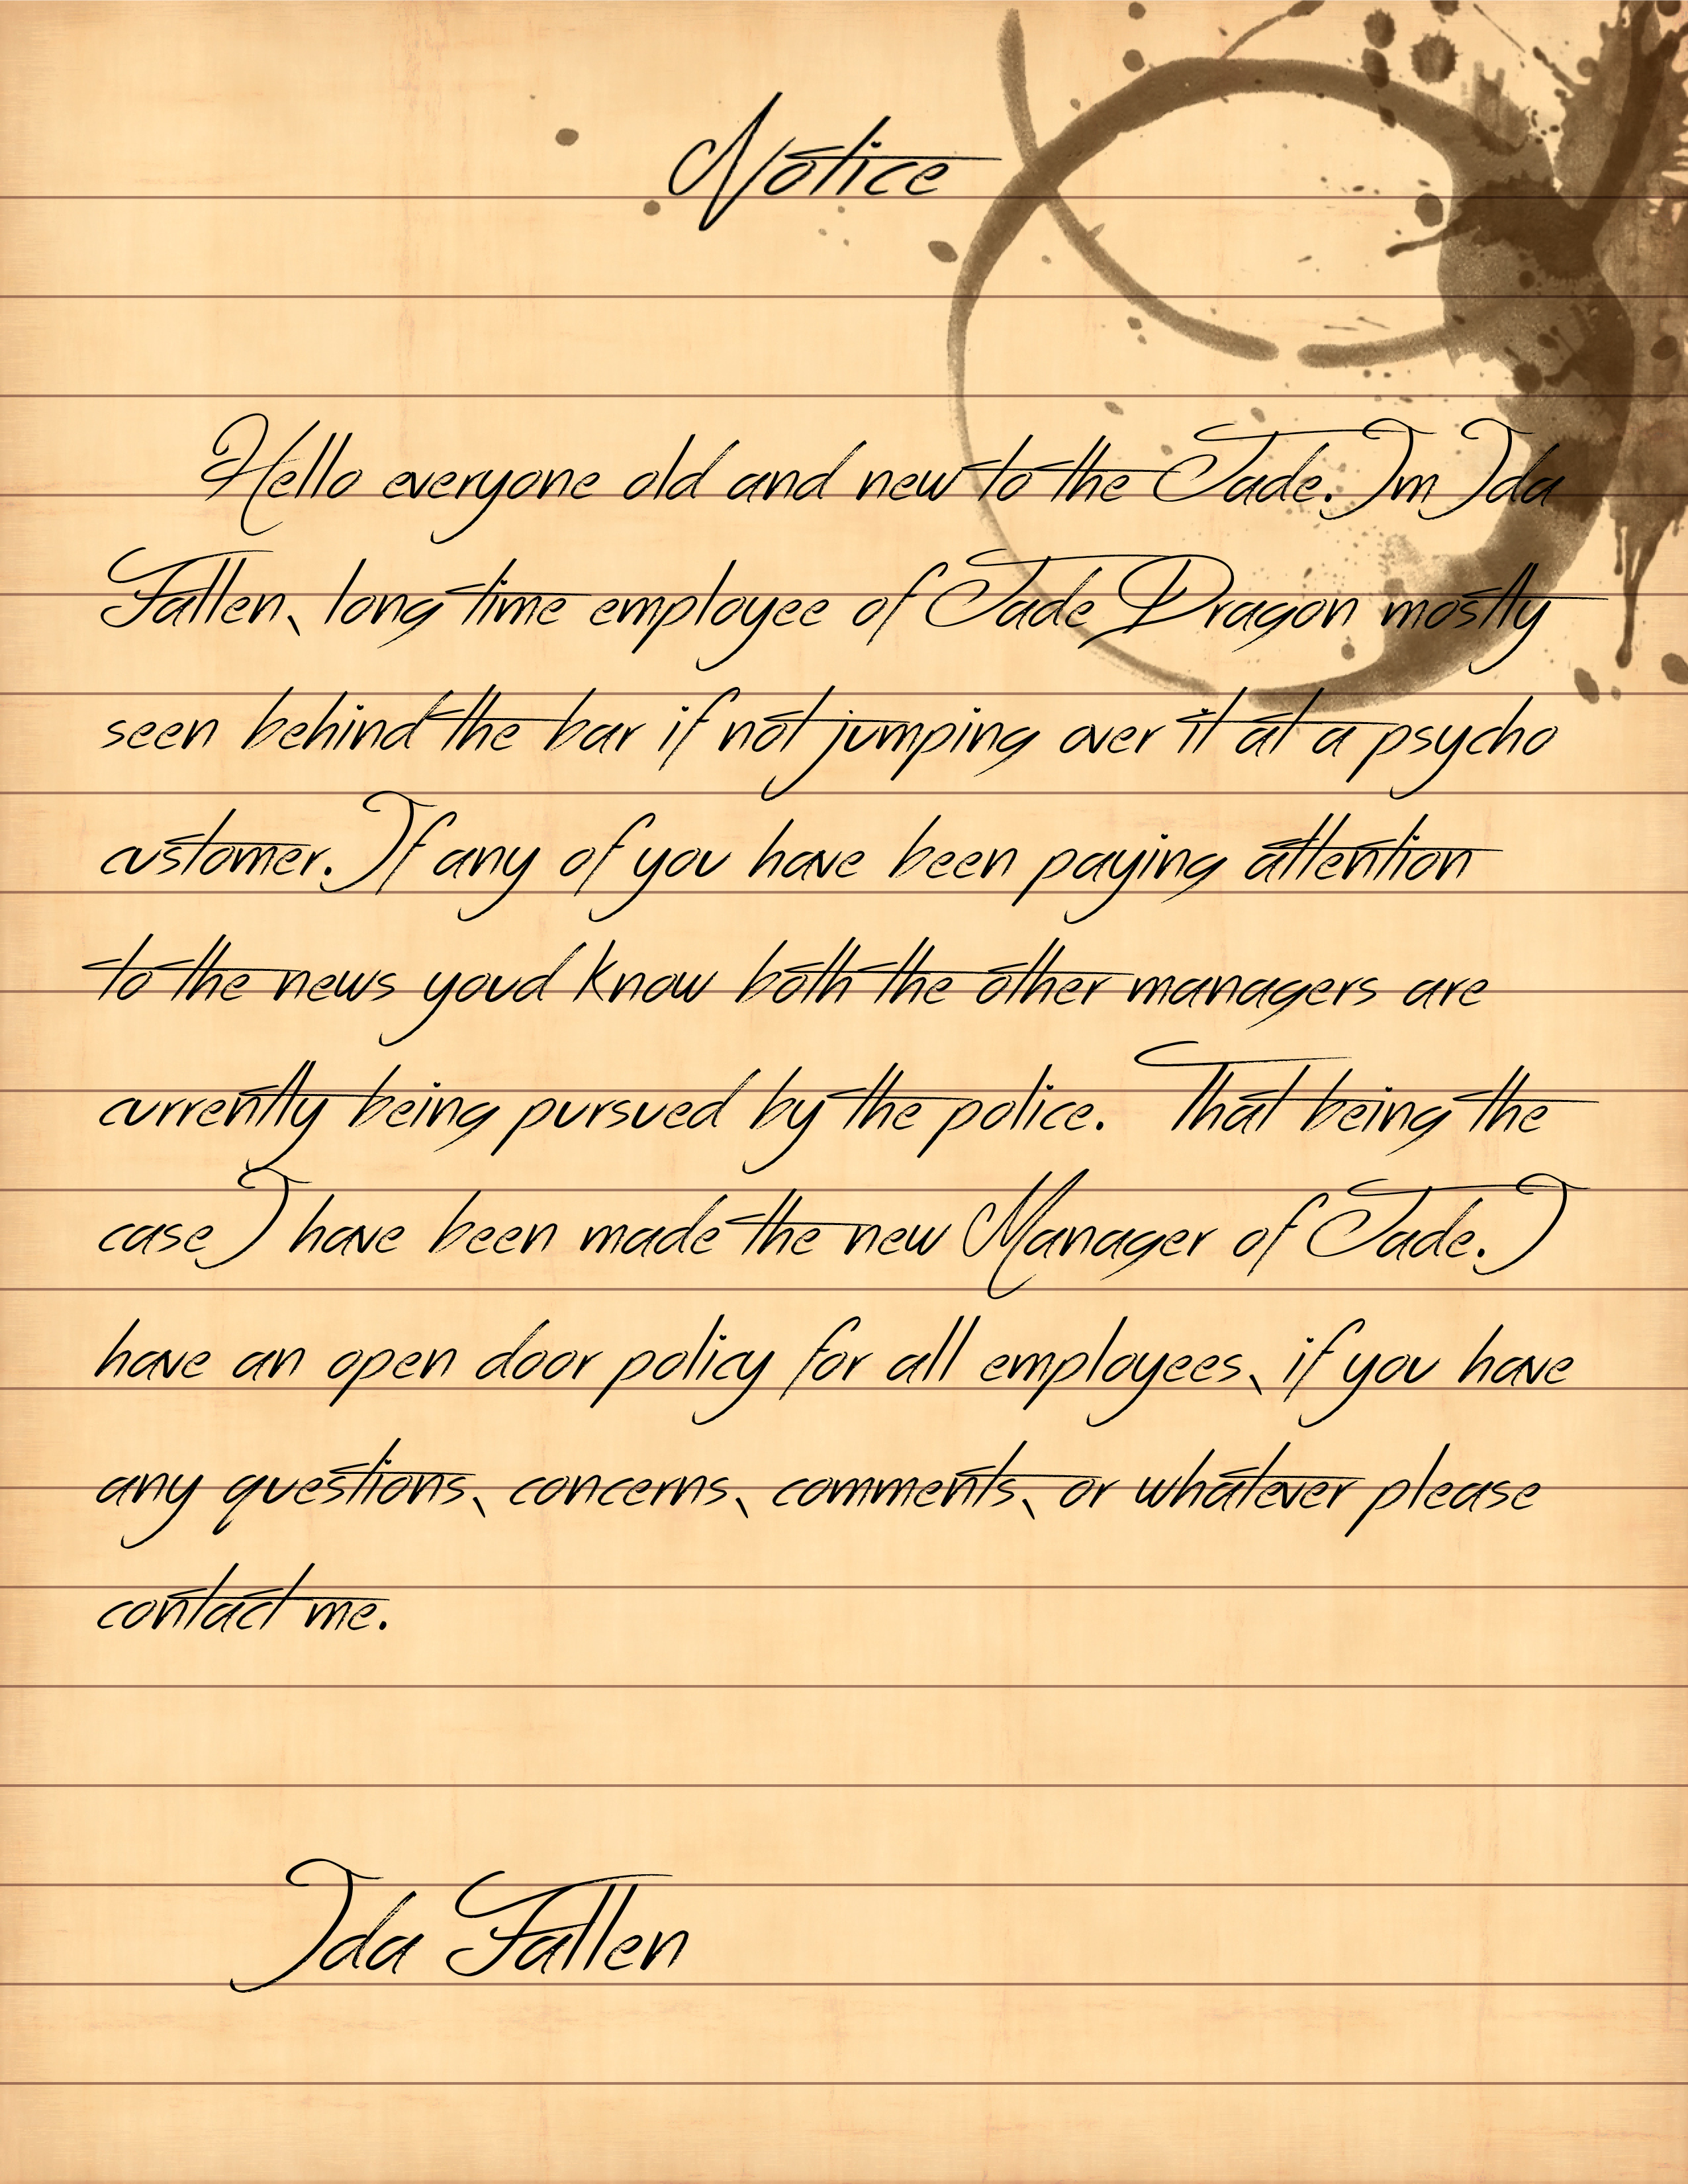 Notice
Hello everyone old and new to the Jade. Im Ida
Fallen, long time employee of Jade Dragon mostly
seen behind the bar if not jumping over it at a psycho
customer. If any of you have been paying attention
to the news youd know both the other managers are
currently being pursued by the police. That being the
case I have been made the new Manager of Jade. I
have an open door policy for all employees, if you have
any questions, concerns, comments, or whatever please
contact me.
Ida Fallen